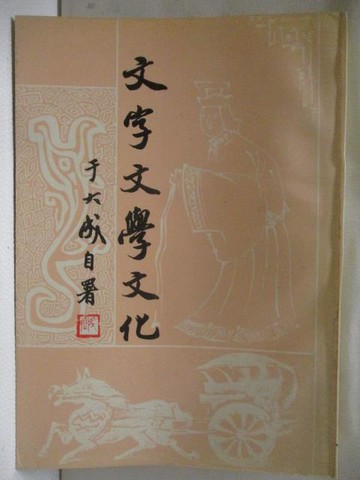 文字文學文化
于大成自署